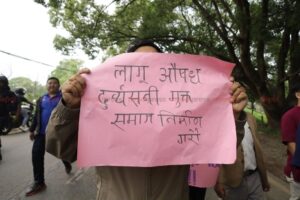 लागू औषध
दुर्व्यसनी मुक्त
समाज निर्माण
गरौं